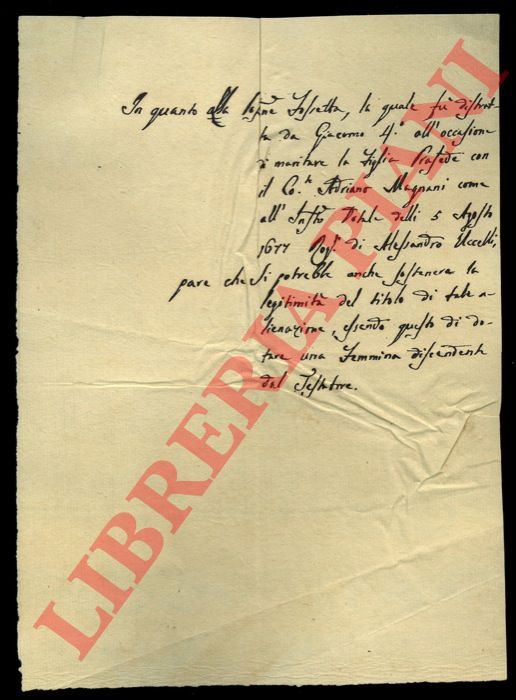 In quanto alla Fossetta, la quale fù distrat-
ta da Giacomo 4.° all'occasione
di maritare la Figlia Prasede con
il Co.te Adriano Magnani come
all' Dotale delli 5 Agosto
1677 Rog.i di Alessandro Uccelli,
pare che si potrebbe anche sostenere la
legitimità del titolo di tale a-
lienazione, essendo questo di do-
tare una Femmina discendente
dal Testatore.
LIBRERIA PIANI